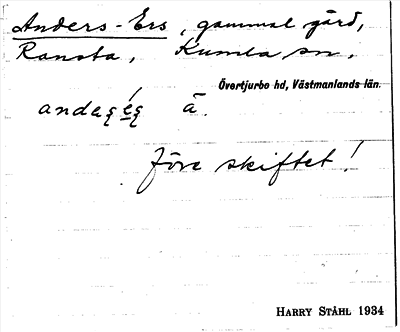 Anders-Ers, gammal gård,
Ransta, Kumla sn,
Övertjurbo hd, Västmanlands län.
ā.
före skiftet!
HARRY STÅHL 1934